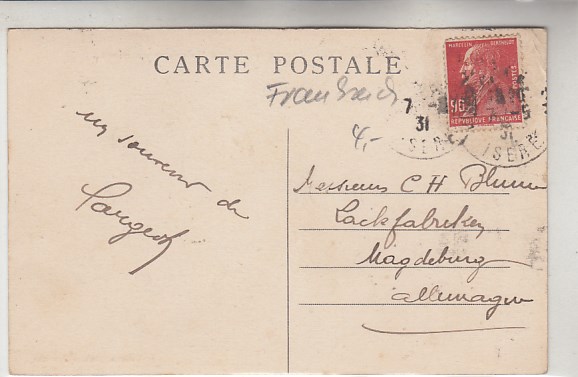 CARTE POSTALE
Frankreich
4,-
MARCELIN BERTHELOT
POSTES
90
REPUBLIQUE FRANÇAISE
7
31
ISERE
31
ISERE
un souvenir de
Messieurs C H Blume
Lackfabriken
Magdeburg
Allemagne